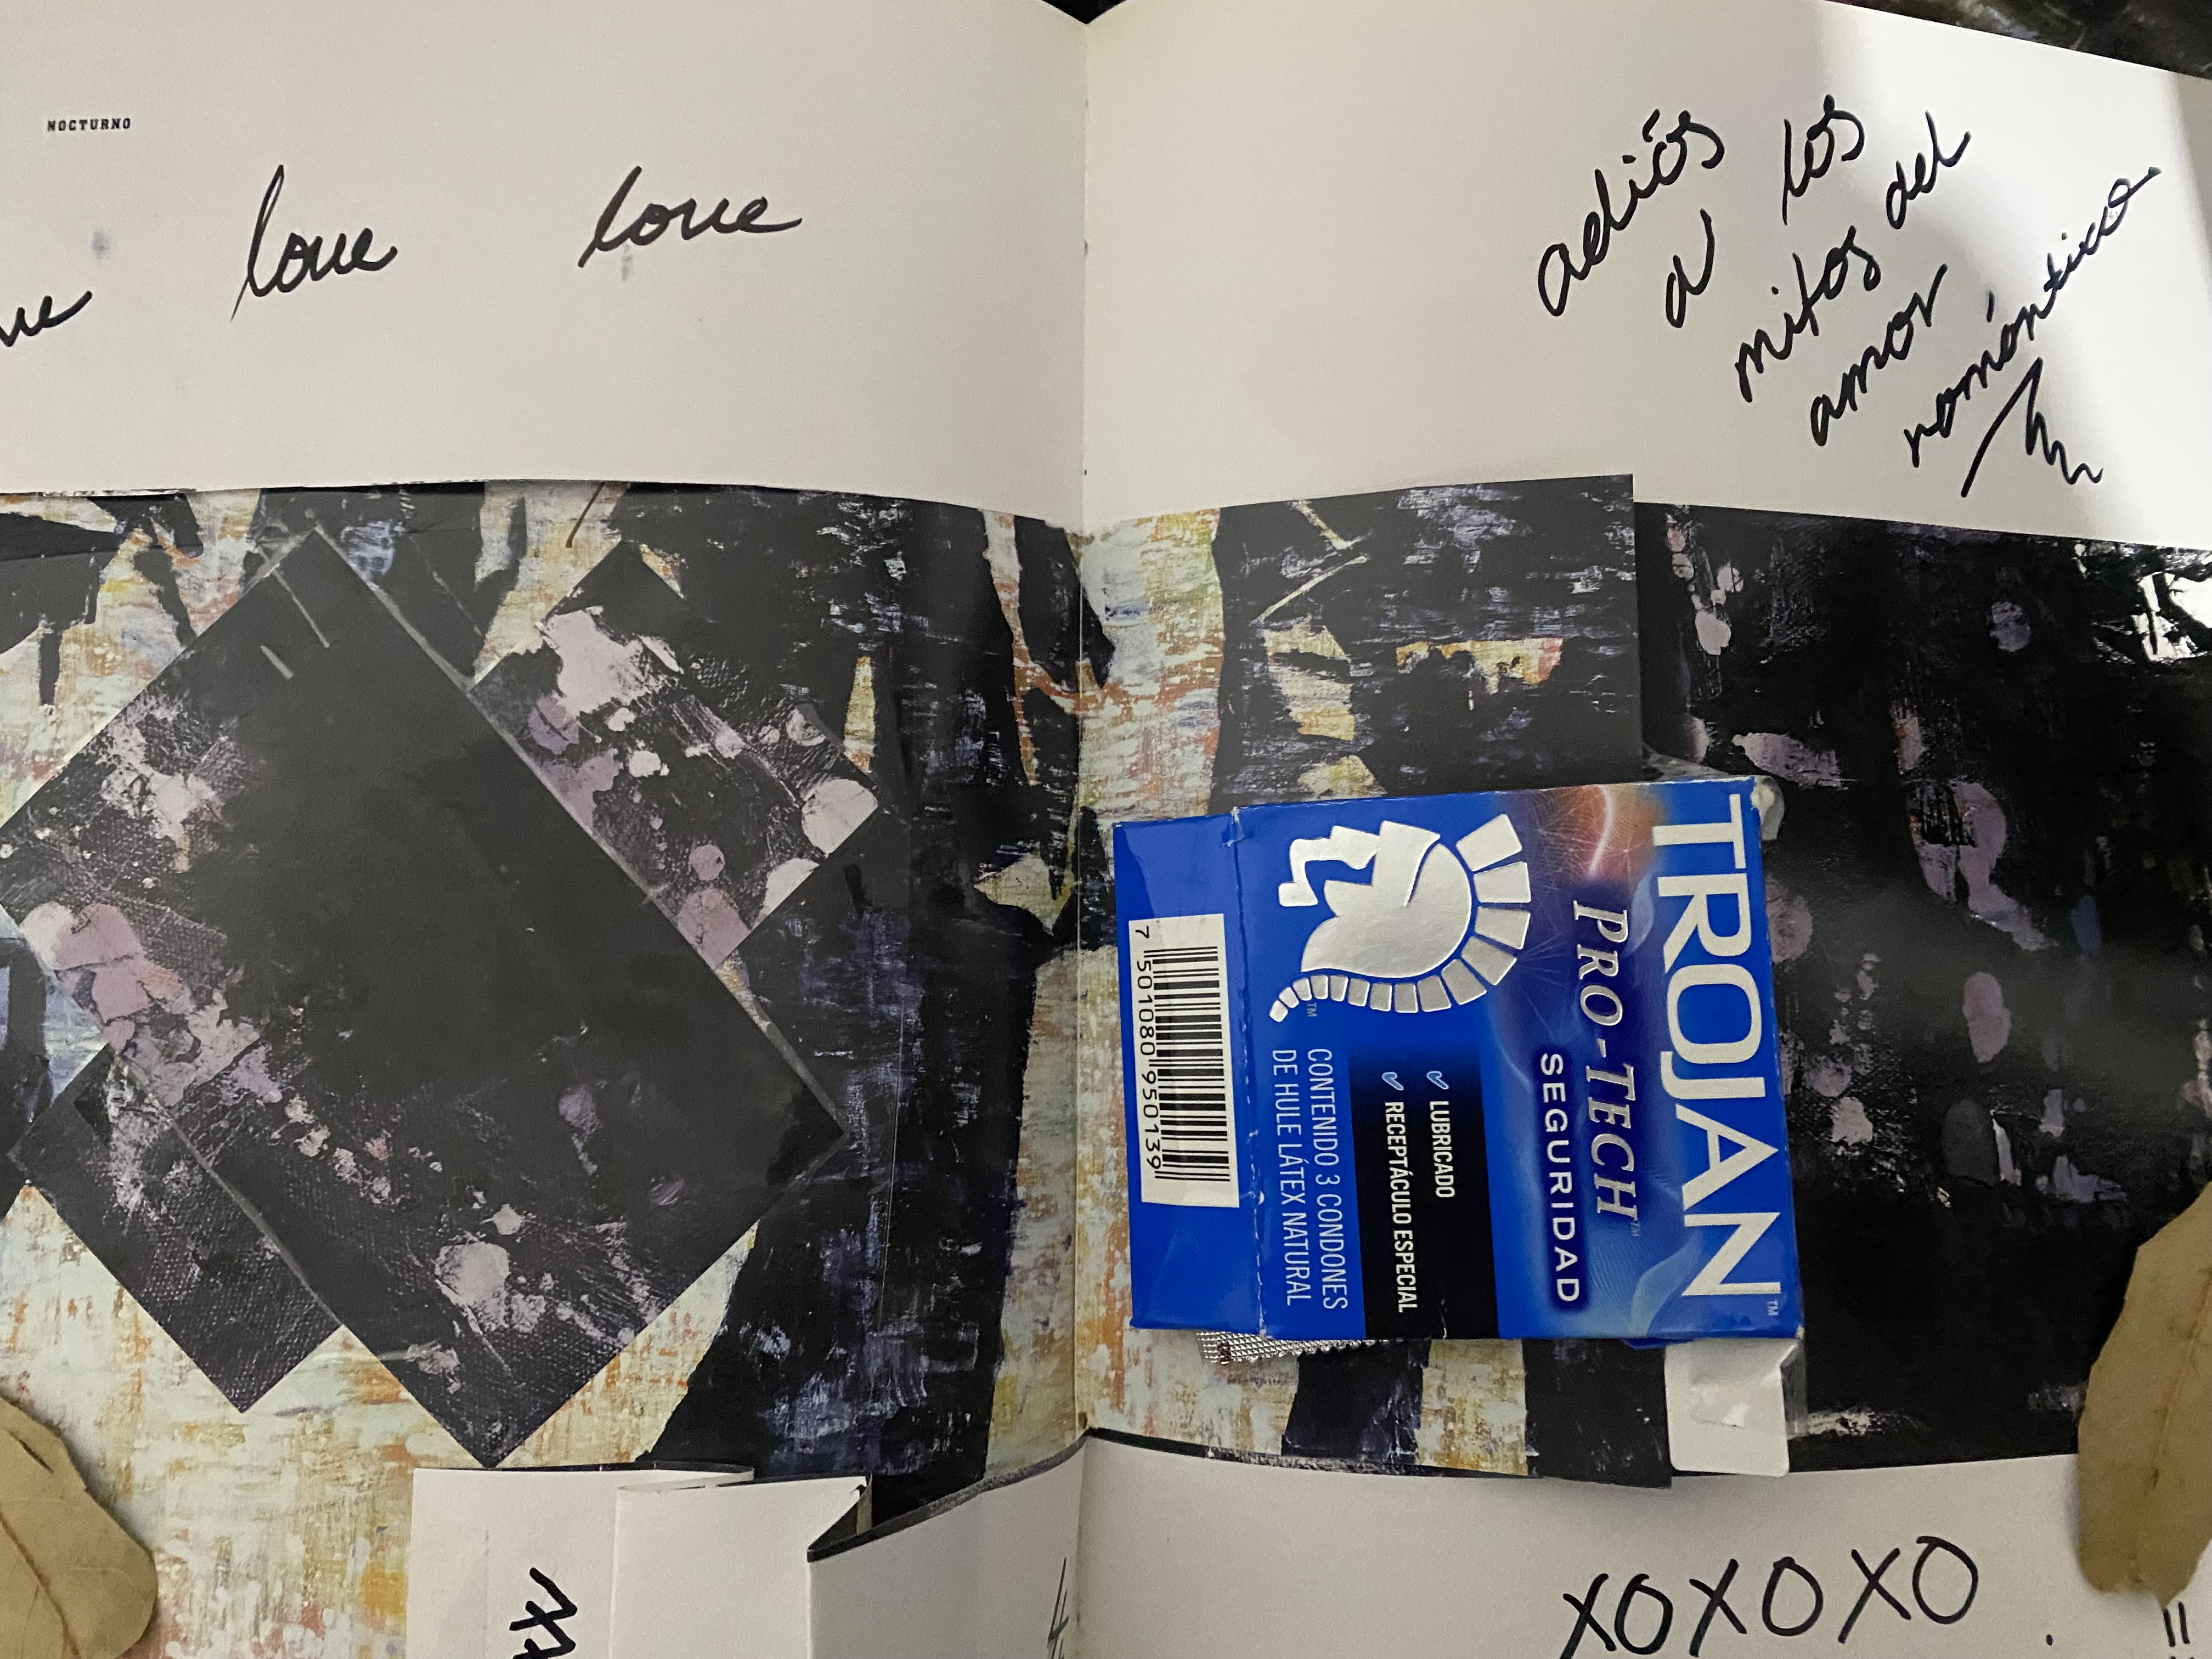 NOCTURNO
love love
adiós
a los
mitos del
amor
romántico
TROJAN™
PRO-TECH™
SEGURIDAD
✓ LUBRICADO
✓ RECEPTÁCULO ESPECIAL
CONTENIDO 3 CONDONES
DE HULE LÁTEX NATURAL
TM
7 501080 950139
XOXOXO